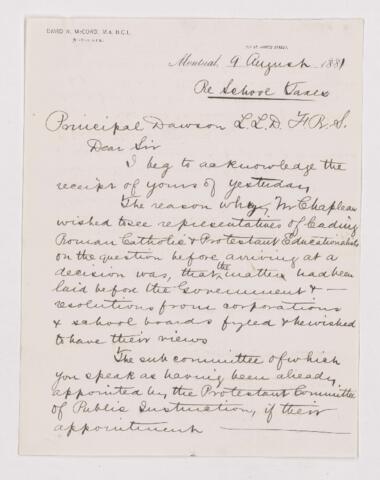 DAVID R. McCORD, M.A. B.C.L.
Montreal, 9 August 1881
Re School Taxes
Principal Dawson L.L.D. F.R.S.
Dear Sir
I beg to acknowledge the
receipt of yours of yesterday
The reason why, Mr Chapleau
wished to see representatives of leading
Roman Catholic & Protestant Educationalists
on the question before arriving at a
decision was, that the matter had been
laid before the Government & —
resolutions from corporations
& school boards fyled & he wished
to have their views
The sub committee of which
you speak as having been already
appointed by the Protestant Committee
of Public Instruction, if their
appointment